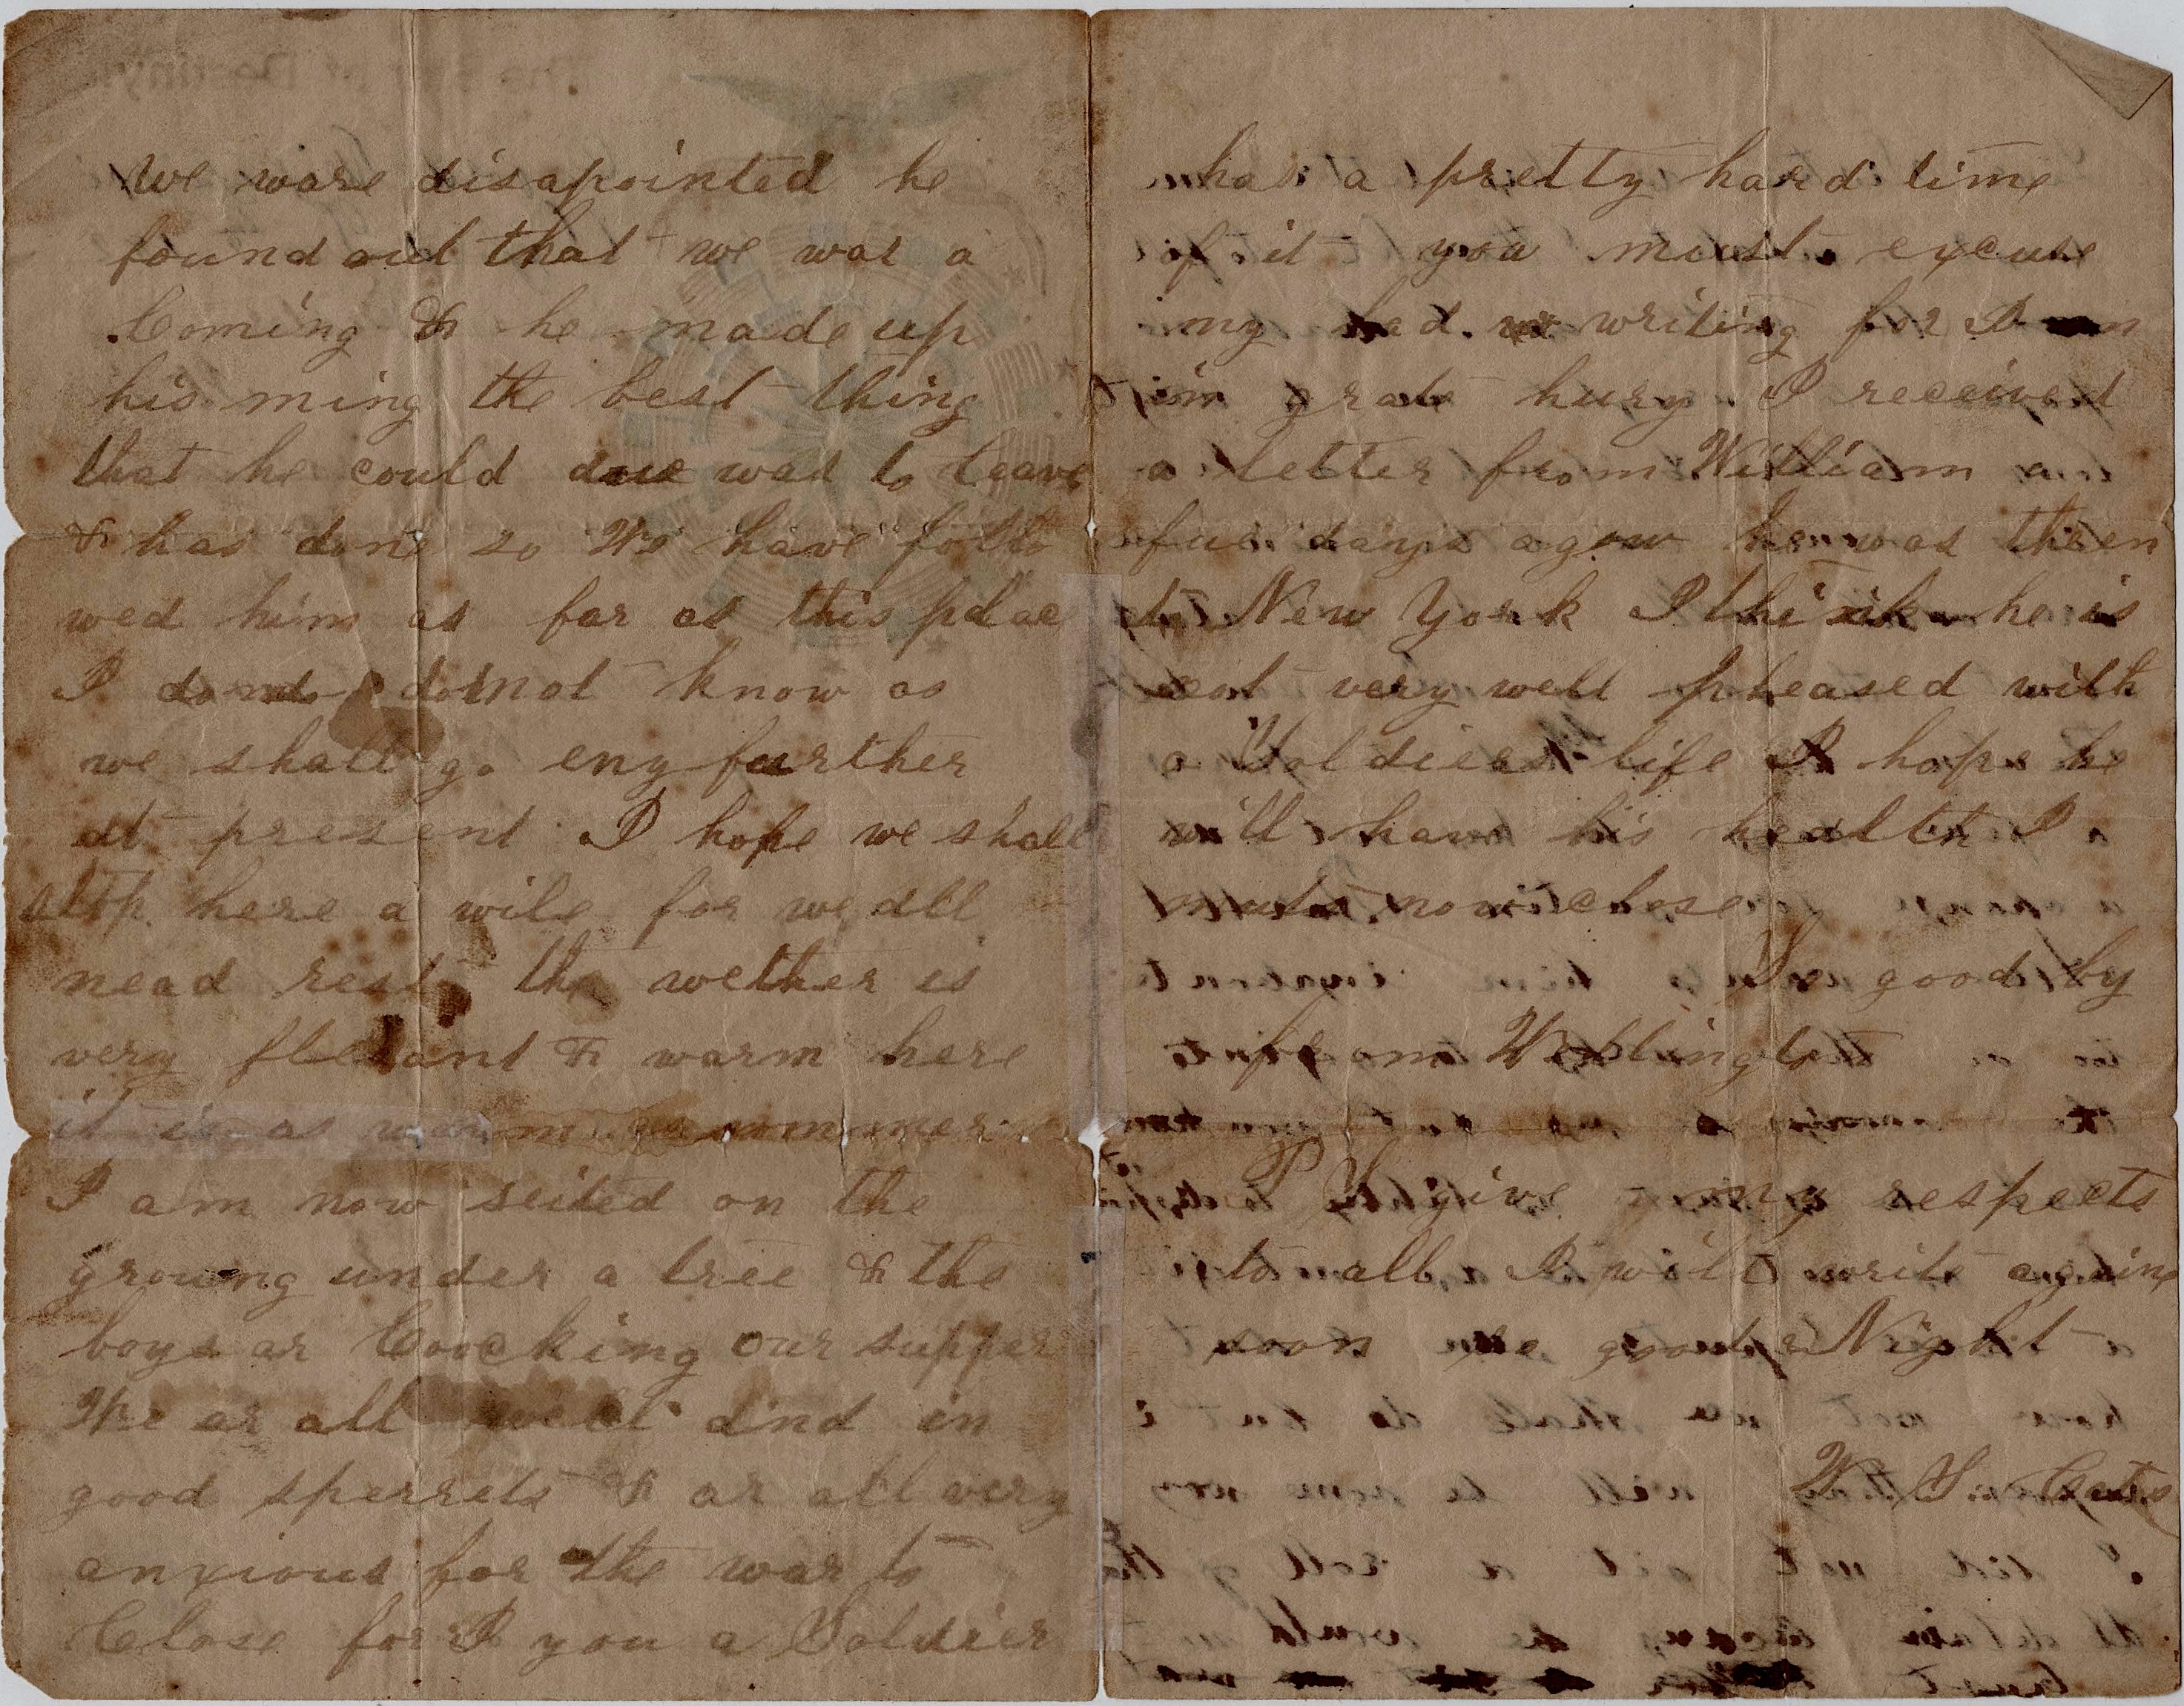 we ware disapointed he
found out that we was a
Coming & he made up
his ming the best thing
that he could due was to leave
& has done so We have follo
wed him as far as this place
I do not know as
we shall go eny further
at present I hope we shall
stop here a wile for we all
nead rest the wether is
very plesant & warm here
it is as warm as sommer
I am now seited on the
growng under a tree & the
boys ar Coocking our supper
We ar all well and in
good sperrets & ar all very
anxious for the war to
Close for I you a Soldier
has a pretty hard time
of it you must excuse
my bad writing for I
in grate hury I received
a letter from William a
fue days agow he was then
in New York I think he is
not very well pleased with
a Soldiers life I hope he
will have his health I
must now close
So good by
from Wellington
P S give my respects
to all I will write agine
soon so good Night
W. S.